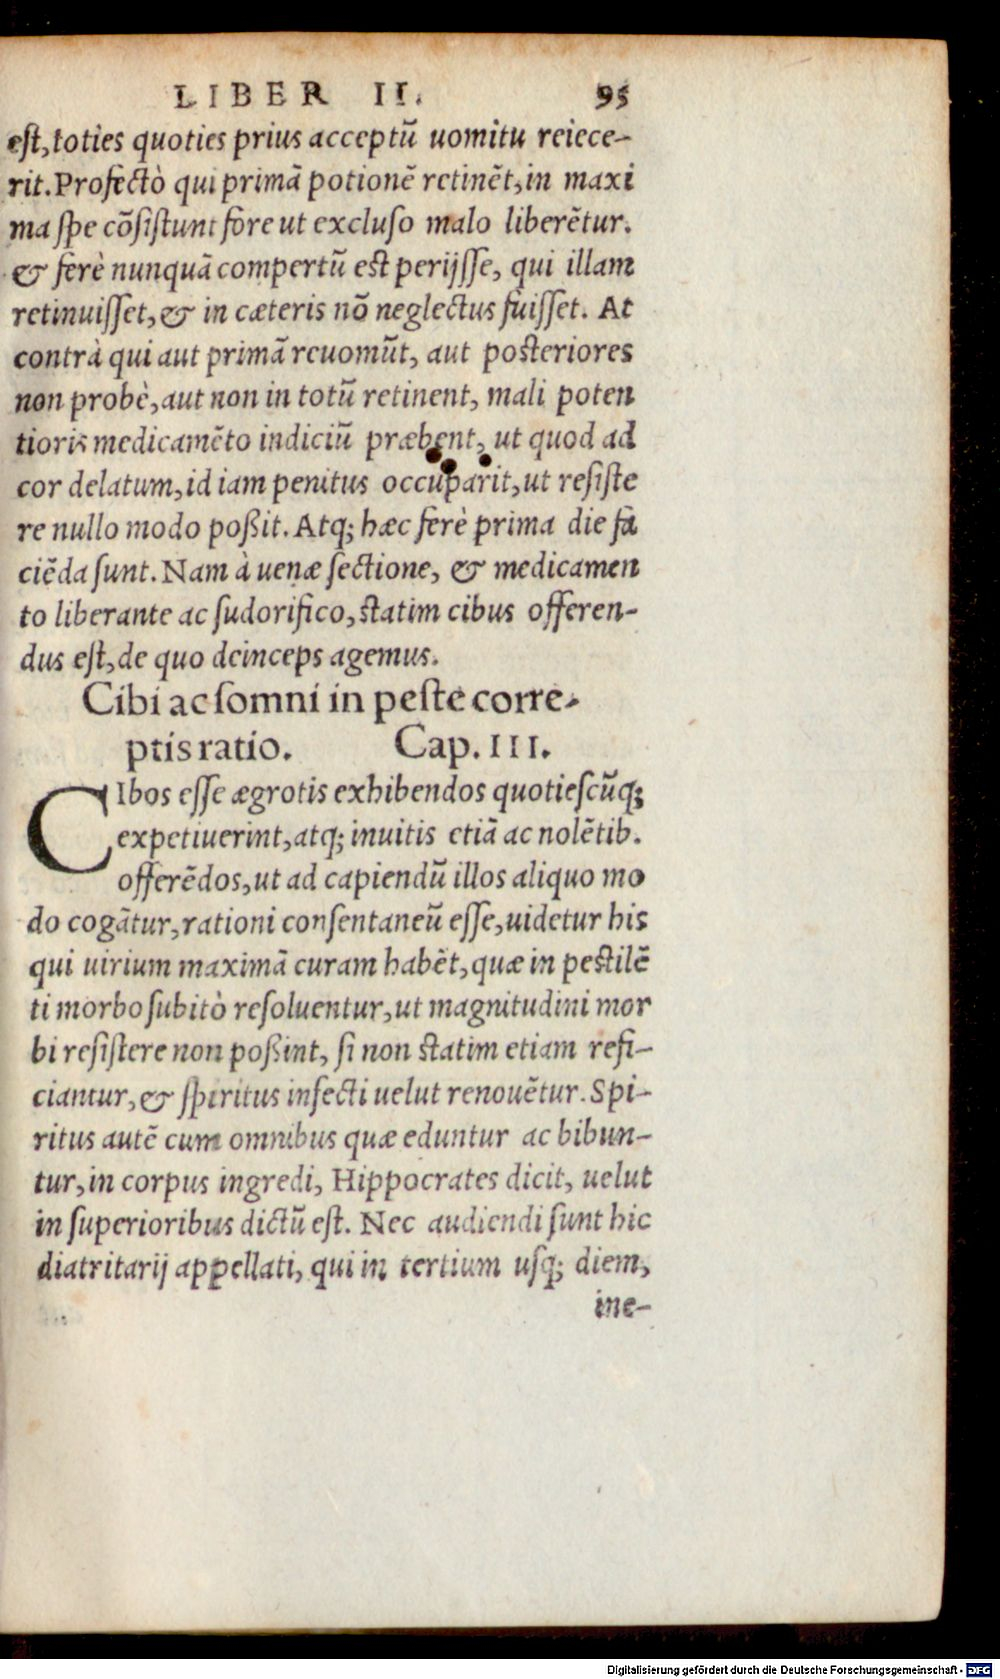 LIBER II. 95
est, toties quoties prius acceptū uomitu reiece-
rit. Profectò qui primā potionē retinēt, in maxi
ma spe cōsistunt fore ut excluso malo liberētur.
& ferè nunquā compertū est perijsse, qui illam
retinuisset, & in cæteris nō neglectus fuisset. At
contrà qui aut primā reuomūt, aut posteriores
non probè, aut non in totū retinent, mali poten
tioris medicamēto indiciū præbent, ut quod ad
cor delatum, id iam penitus occuparit, ut resiste
re nullo modo poßit. Atq; hæc ferè prima die fa
ciēda sunt. Nam à uenæ sectione, & medicamen
to liberante ac sudorifico, statim cibus offeren-
dus est, de quo deinceps agemus.
Cibi ac somni in peste corre-
ptis ratio. Cap. III.
CIbos esse ægrotis exhibendos quotiescūq;
expetiuerint, atq; inuitis etiā ac nolētib.
offerēdos, ut ad capiendū illos aliquo mo
do cogātur, rationi consentaneū esse, uidetur his
qui uirium maximā curam habēt, quæ in pestilē
ti morbo subitò resoluentur, ut magnitudini mor
bi resistere non poßint, si non statim etiam refi-
ciantur, & spiritus infecti uelut renouētur. Spi-
ritus autē cum omnibus quæ eduntur ac bibun-
tur, in corpus ingredi, Hippocrates dicit, uelut
in superioribus dictū est. Nec audiendi sunt hic
diatritarij appellati, qui in tertium usq; diem,
ine-
Digitalisierung gefördert durch die Deutsche Forschungsgemeinschaft - DFG